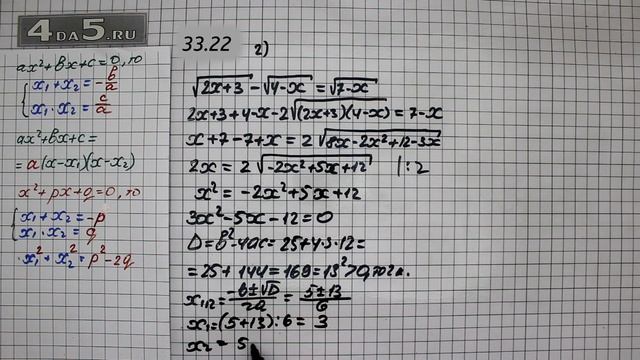 4DA5.RU
33.22
2)
ax²+bx+c=0, то
x₁+x₂=-b/a
x₁·x₂=c/a
ax²+bx+c=
=a(x-x₁)(x-x₂)
x²+px+q=0, то
x₁+x₂=-p
x₁·x₂=q
x₁²+x₂²=p²-2q
√(2x+3)-√(4-x)=√(7-x)
2x+3+4-x-2√((2x+3)(4-x))=7-x
x+7-7+x=2√(8x-2x²+12-3x)
2x=2√(-2x²+5x+12) |:2
x²=-2x²+5x+12
3x²-5x-12=0
D=b²-4ac=25+4·3·12=
=25+144=169=13²>0, то 2 к.
x₁,₂=(-b±√D)/2a=(5±13)/6
x₁=(5+13):6=3
x₂=5